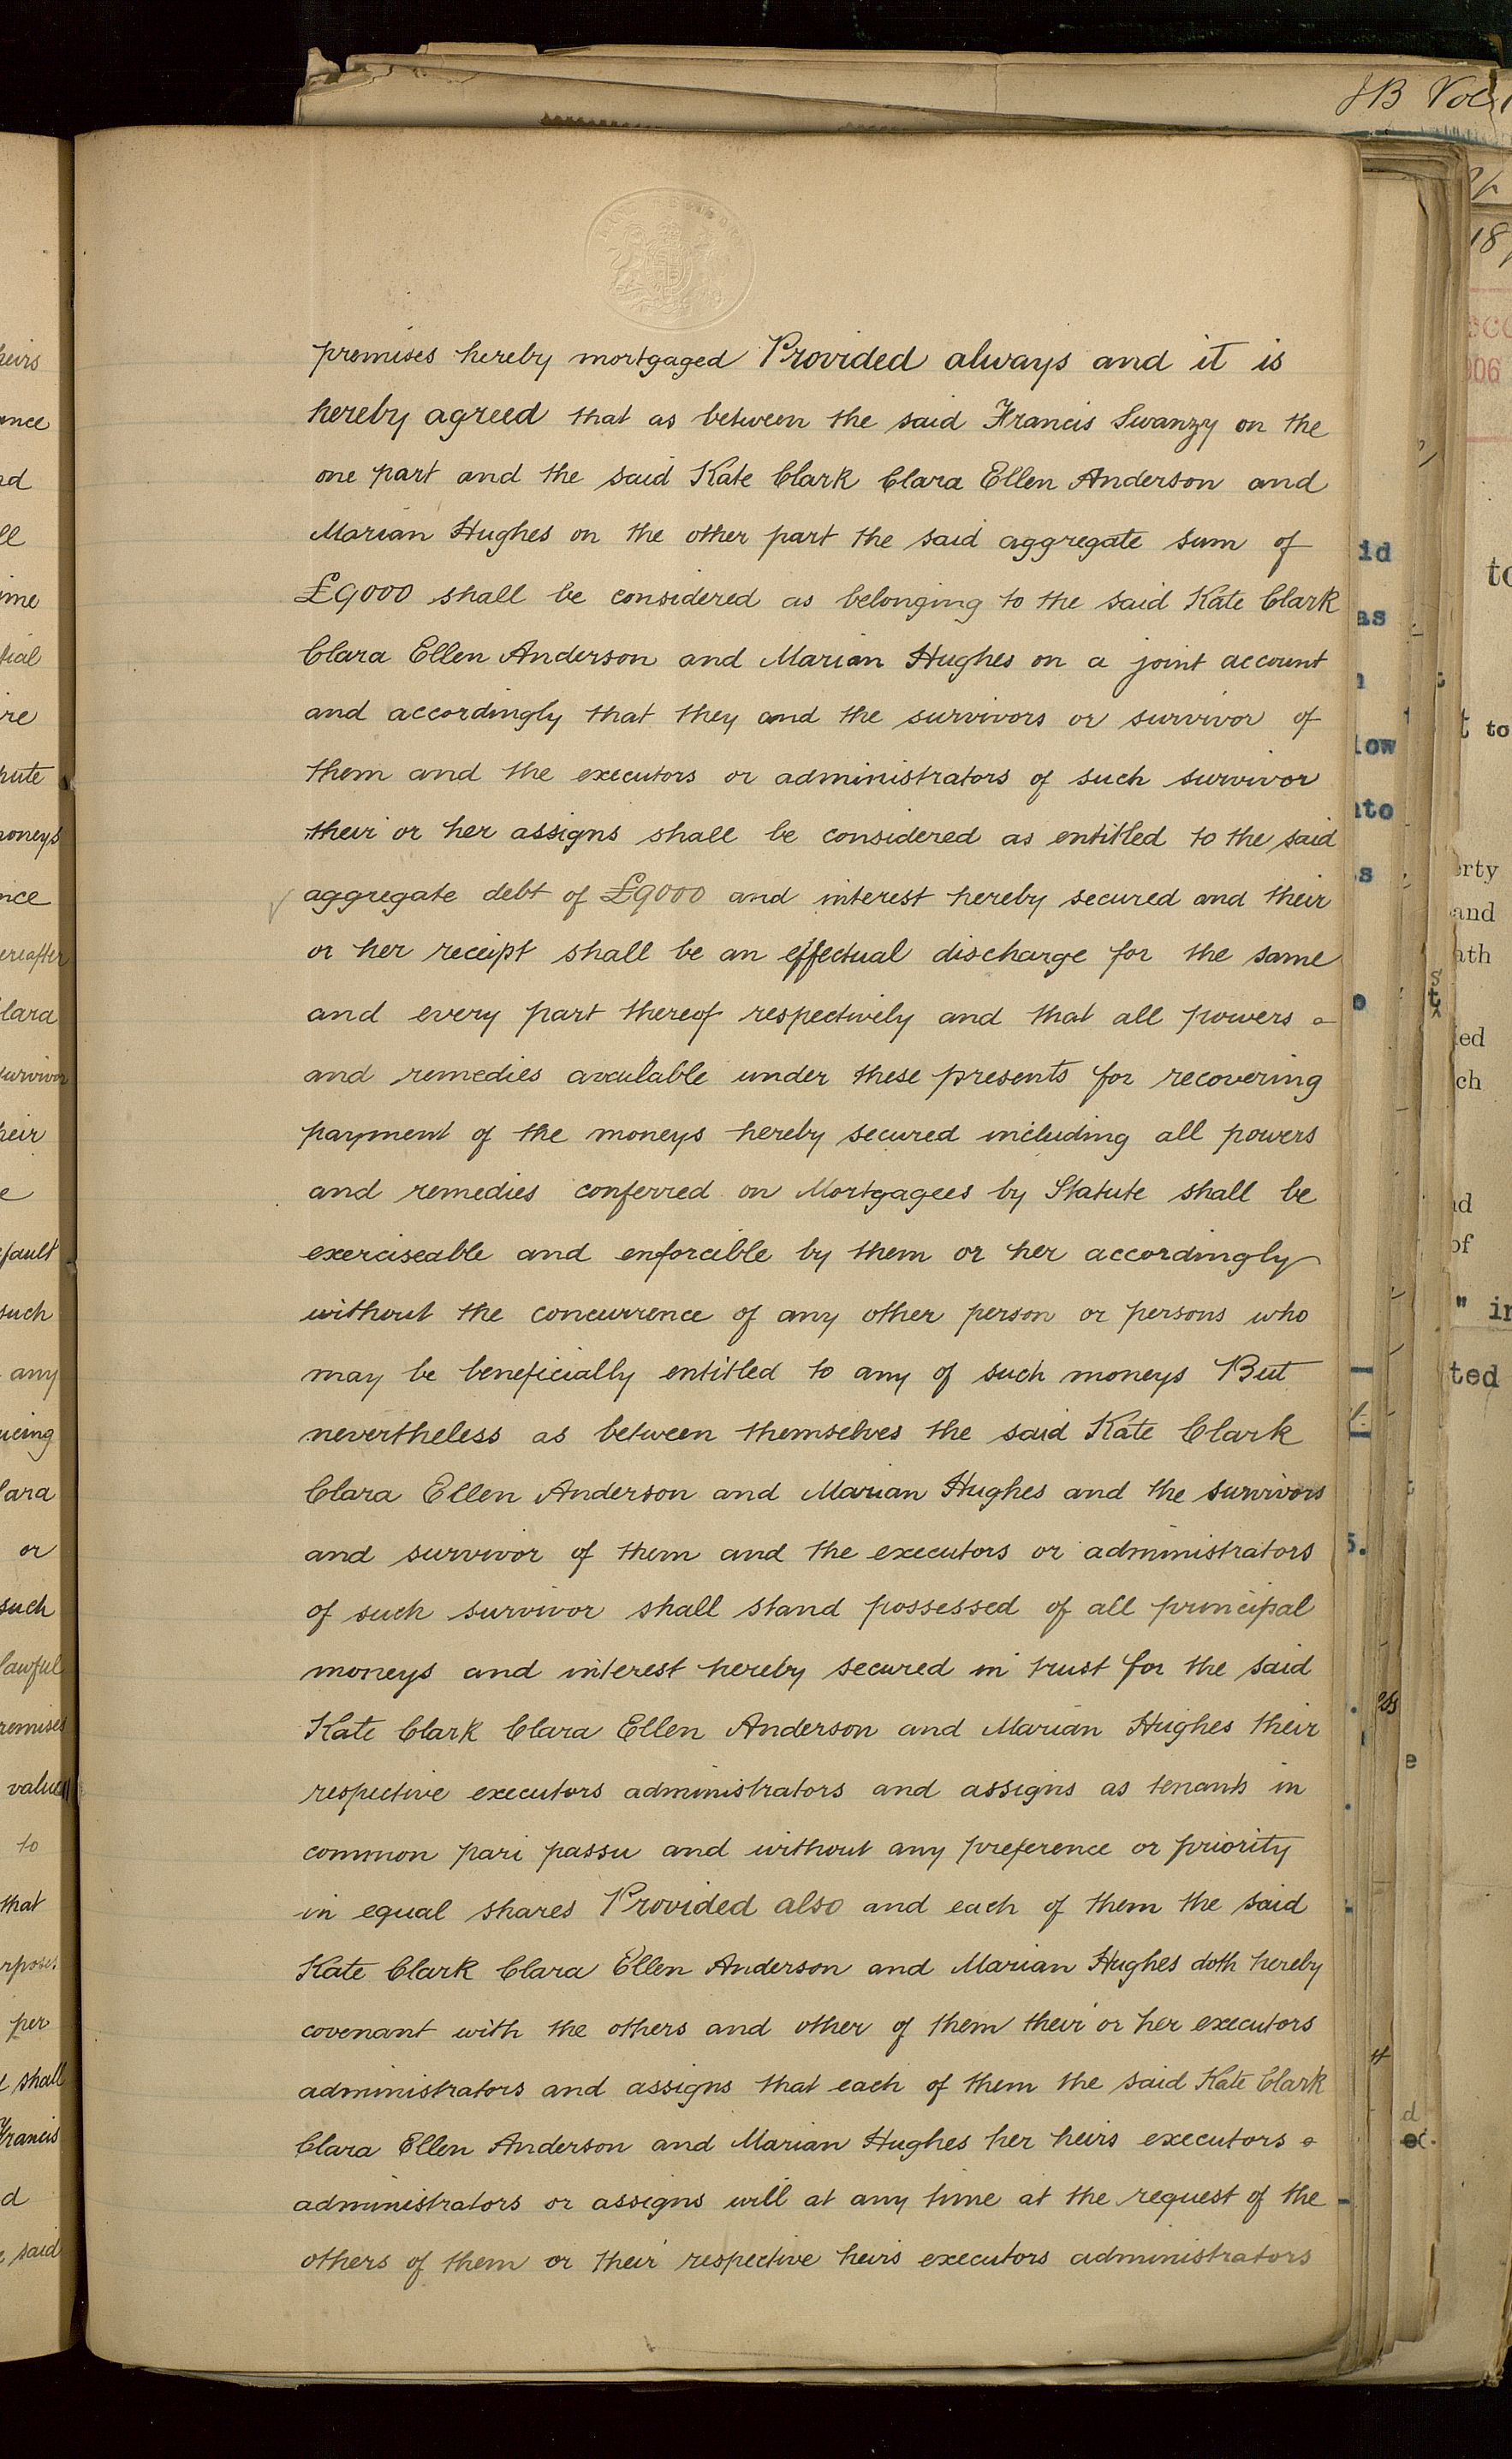 premises hereby mortgaged Provided always and it is
hereby agreed that as between the said Francis Swanzy on the
one part and the said Kate Clark Clara Ellen Anderson and
Marian Hughes on the other part the said aggregate sum of
£9000 shall be considered as belonging to the said Kate Clark
Clara Ellen Anderson and Marian Hughes on a joint account
and accordingly that they and the survivors or survivor of
them and the executors or administrators of such survivor
their or her assigns shall be considered as entitled to the said
aggregate debt of £9000 and interest hereby secured and their
or her receipt shall be an effectual discharge for the same
and every part thereof respectively and that all powers
and remedies available under these presents for recovering
payment of the moneys hereby secured including all powers
and remedies conferred on Mortgagees by Statute shall be
exerciseable and enforcible by them or her accordingly
without the concurrence of any other person or persons who
may be beneficially entitled to any of such moneys But
nevertheless as between themselves the said Kate Clark
Clara Ellen Anderson and Marian Hughes and the survivors
and survivor of them and the executors or administrators
of such survivor shall stand possessed of all principal
moneys and interest hereby secured in trust for the said
Kate Clark Clara Ellen Anderson and Marian Hughes their
respective executors administrators and assigns as tenants in
common pari passu and without any preference or priority
in equal shares Provided also and each of them the said
Kate Clark Clara Ellen Anderson and Marian Hughes doth hereby
covenant with the others and other of them their or her executors
administrators and assigns that each of them the said Kate Clark
Clara Ellen Anderson and Marian Hughes her heirs executors
administrators or assigns will at any time at the request of the
others of them or their respective heirs executors administrators